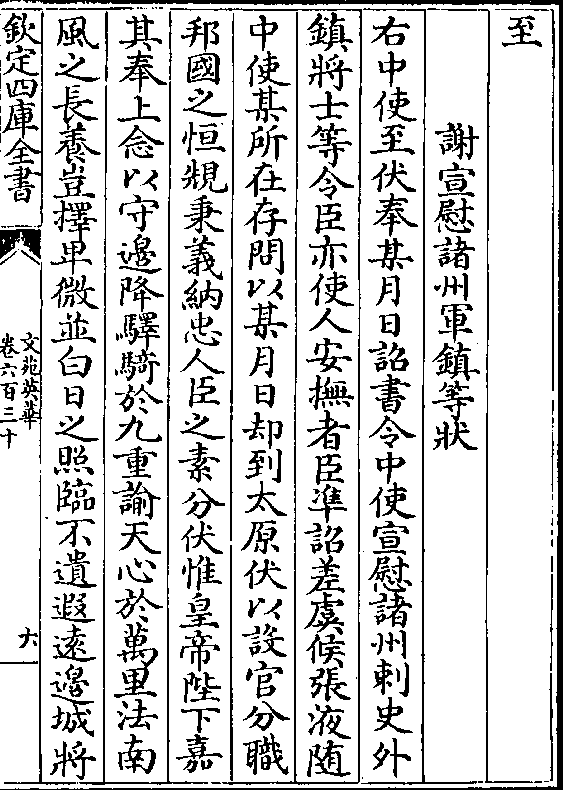 至
謝宣慰諸州軍鎮等狀
右中使至伏奉某月日詔書令中使宣慰諸州刺史外
鎮將士等令臣亦使人安撫者臣準詔差虞候張液随
中使某所在存問以某月日却到太原伏以設官分職
邦國之恒規秉義納忠人臣之素分伏惟皇帝陛下嘉
其奉上念以守邊降驛騎於九重諭天心於萬里法南
風之長養豈擇卑微並白日之照臨不遺遐逺邊城將
欽定四庫全書
文苑英華
卷六百三十
六